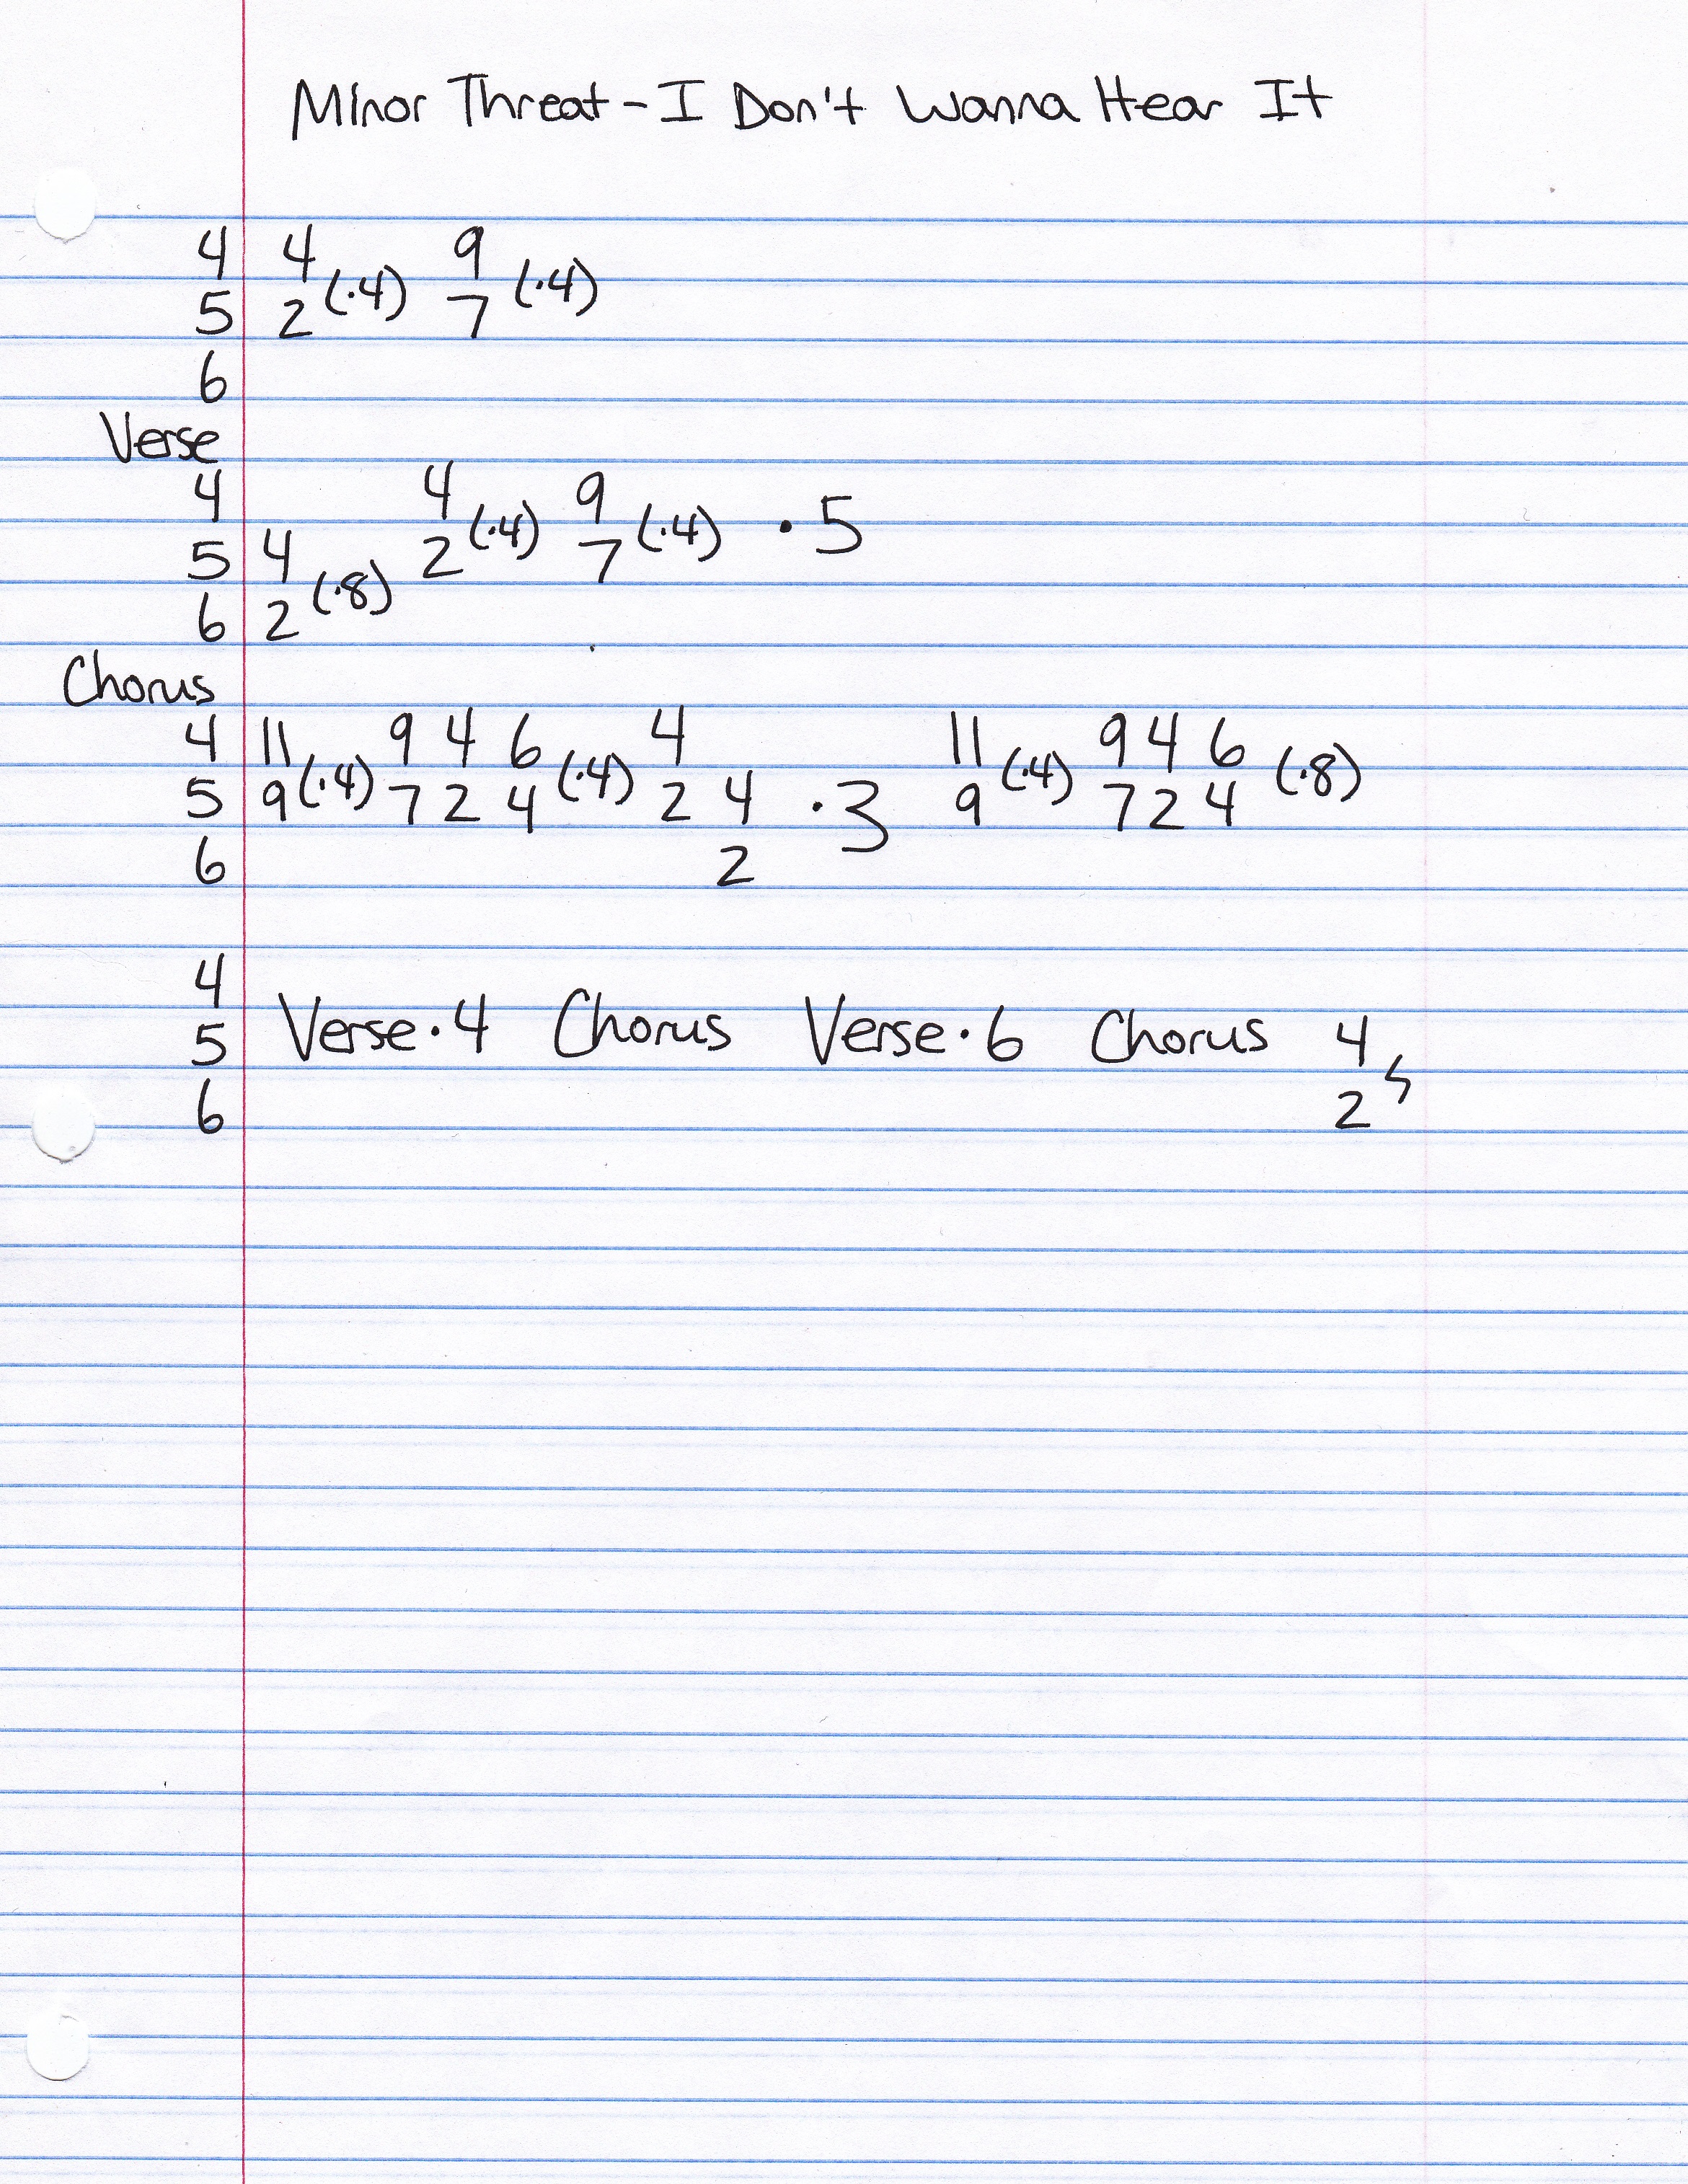 Minor Threat - I Don't Wanna Hear It
4 4 9
5 2 (·4) 7 (·4)
6
Verse
4 4 9
5 4 2 (·4) 7 (·4) · 5
6 2 (·8)
Chorus
4 11 9 4 6 4 11 9 4 6
5 9 (·4) 7 2 4 (·4) 2 4 · 3 9 (·4) 7 2 4 (·8)
6 2
4
5 Verse · 4 Chorus Verse · 6 Chorus 4
6 2